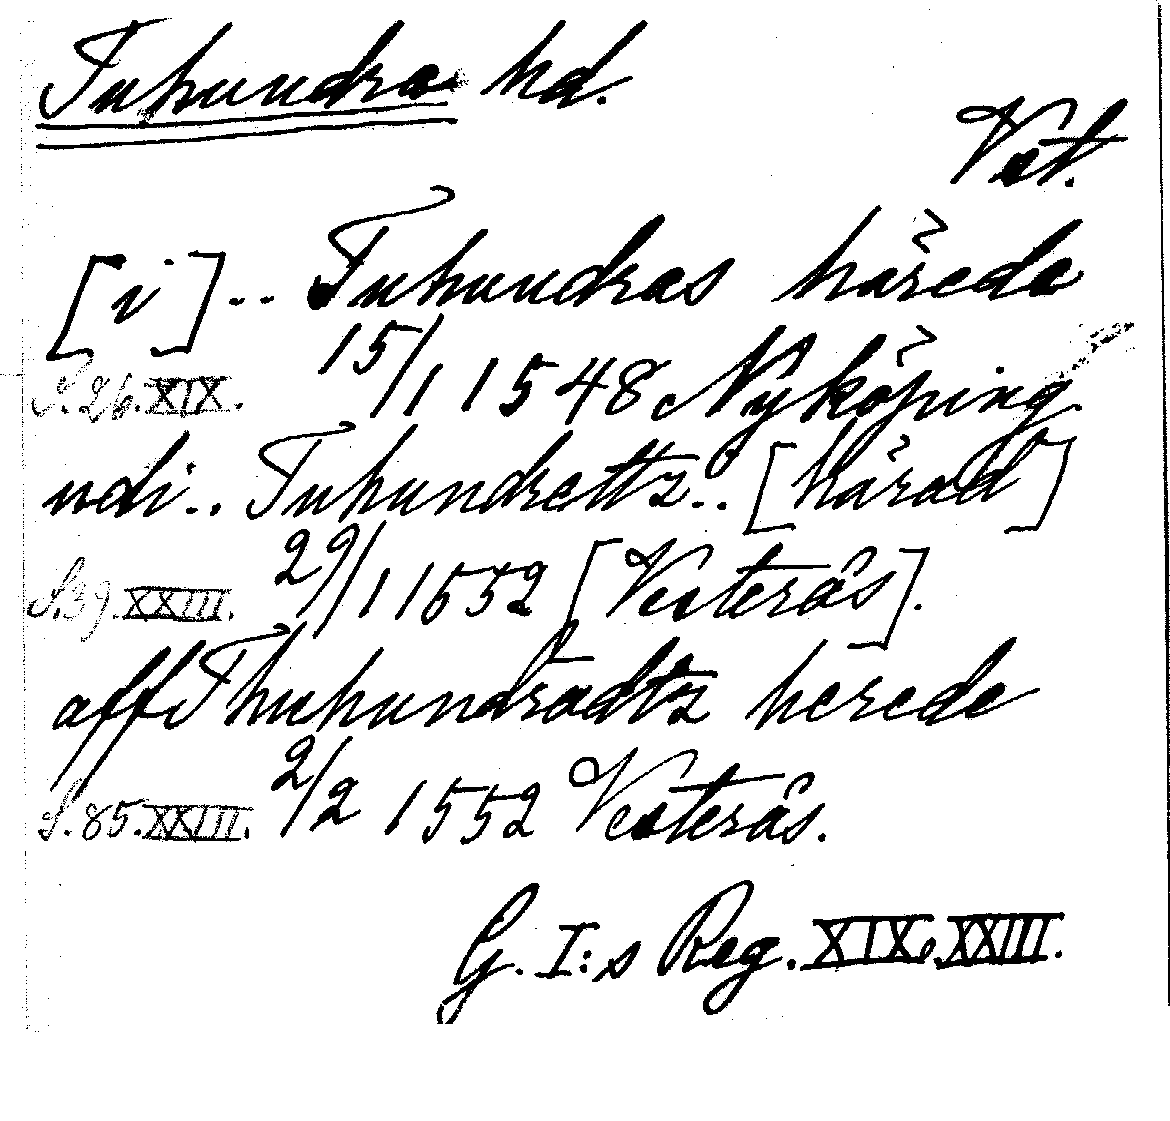 Tuhundra hd.
Vst.
[i] .. Tuhundras härede
S. 26. XIX. 15/1 1548 Nyköping.
udi .. Tuhundrettz .. [härad]
S. 39. XXIII. 29/1 1552 [Vesterås].
aff Thuhundradtz herede
S. 85. XXIII. 2/2 1552 Vesterås.
G. I:s Reg. XIX, XXIII.